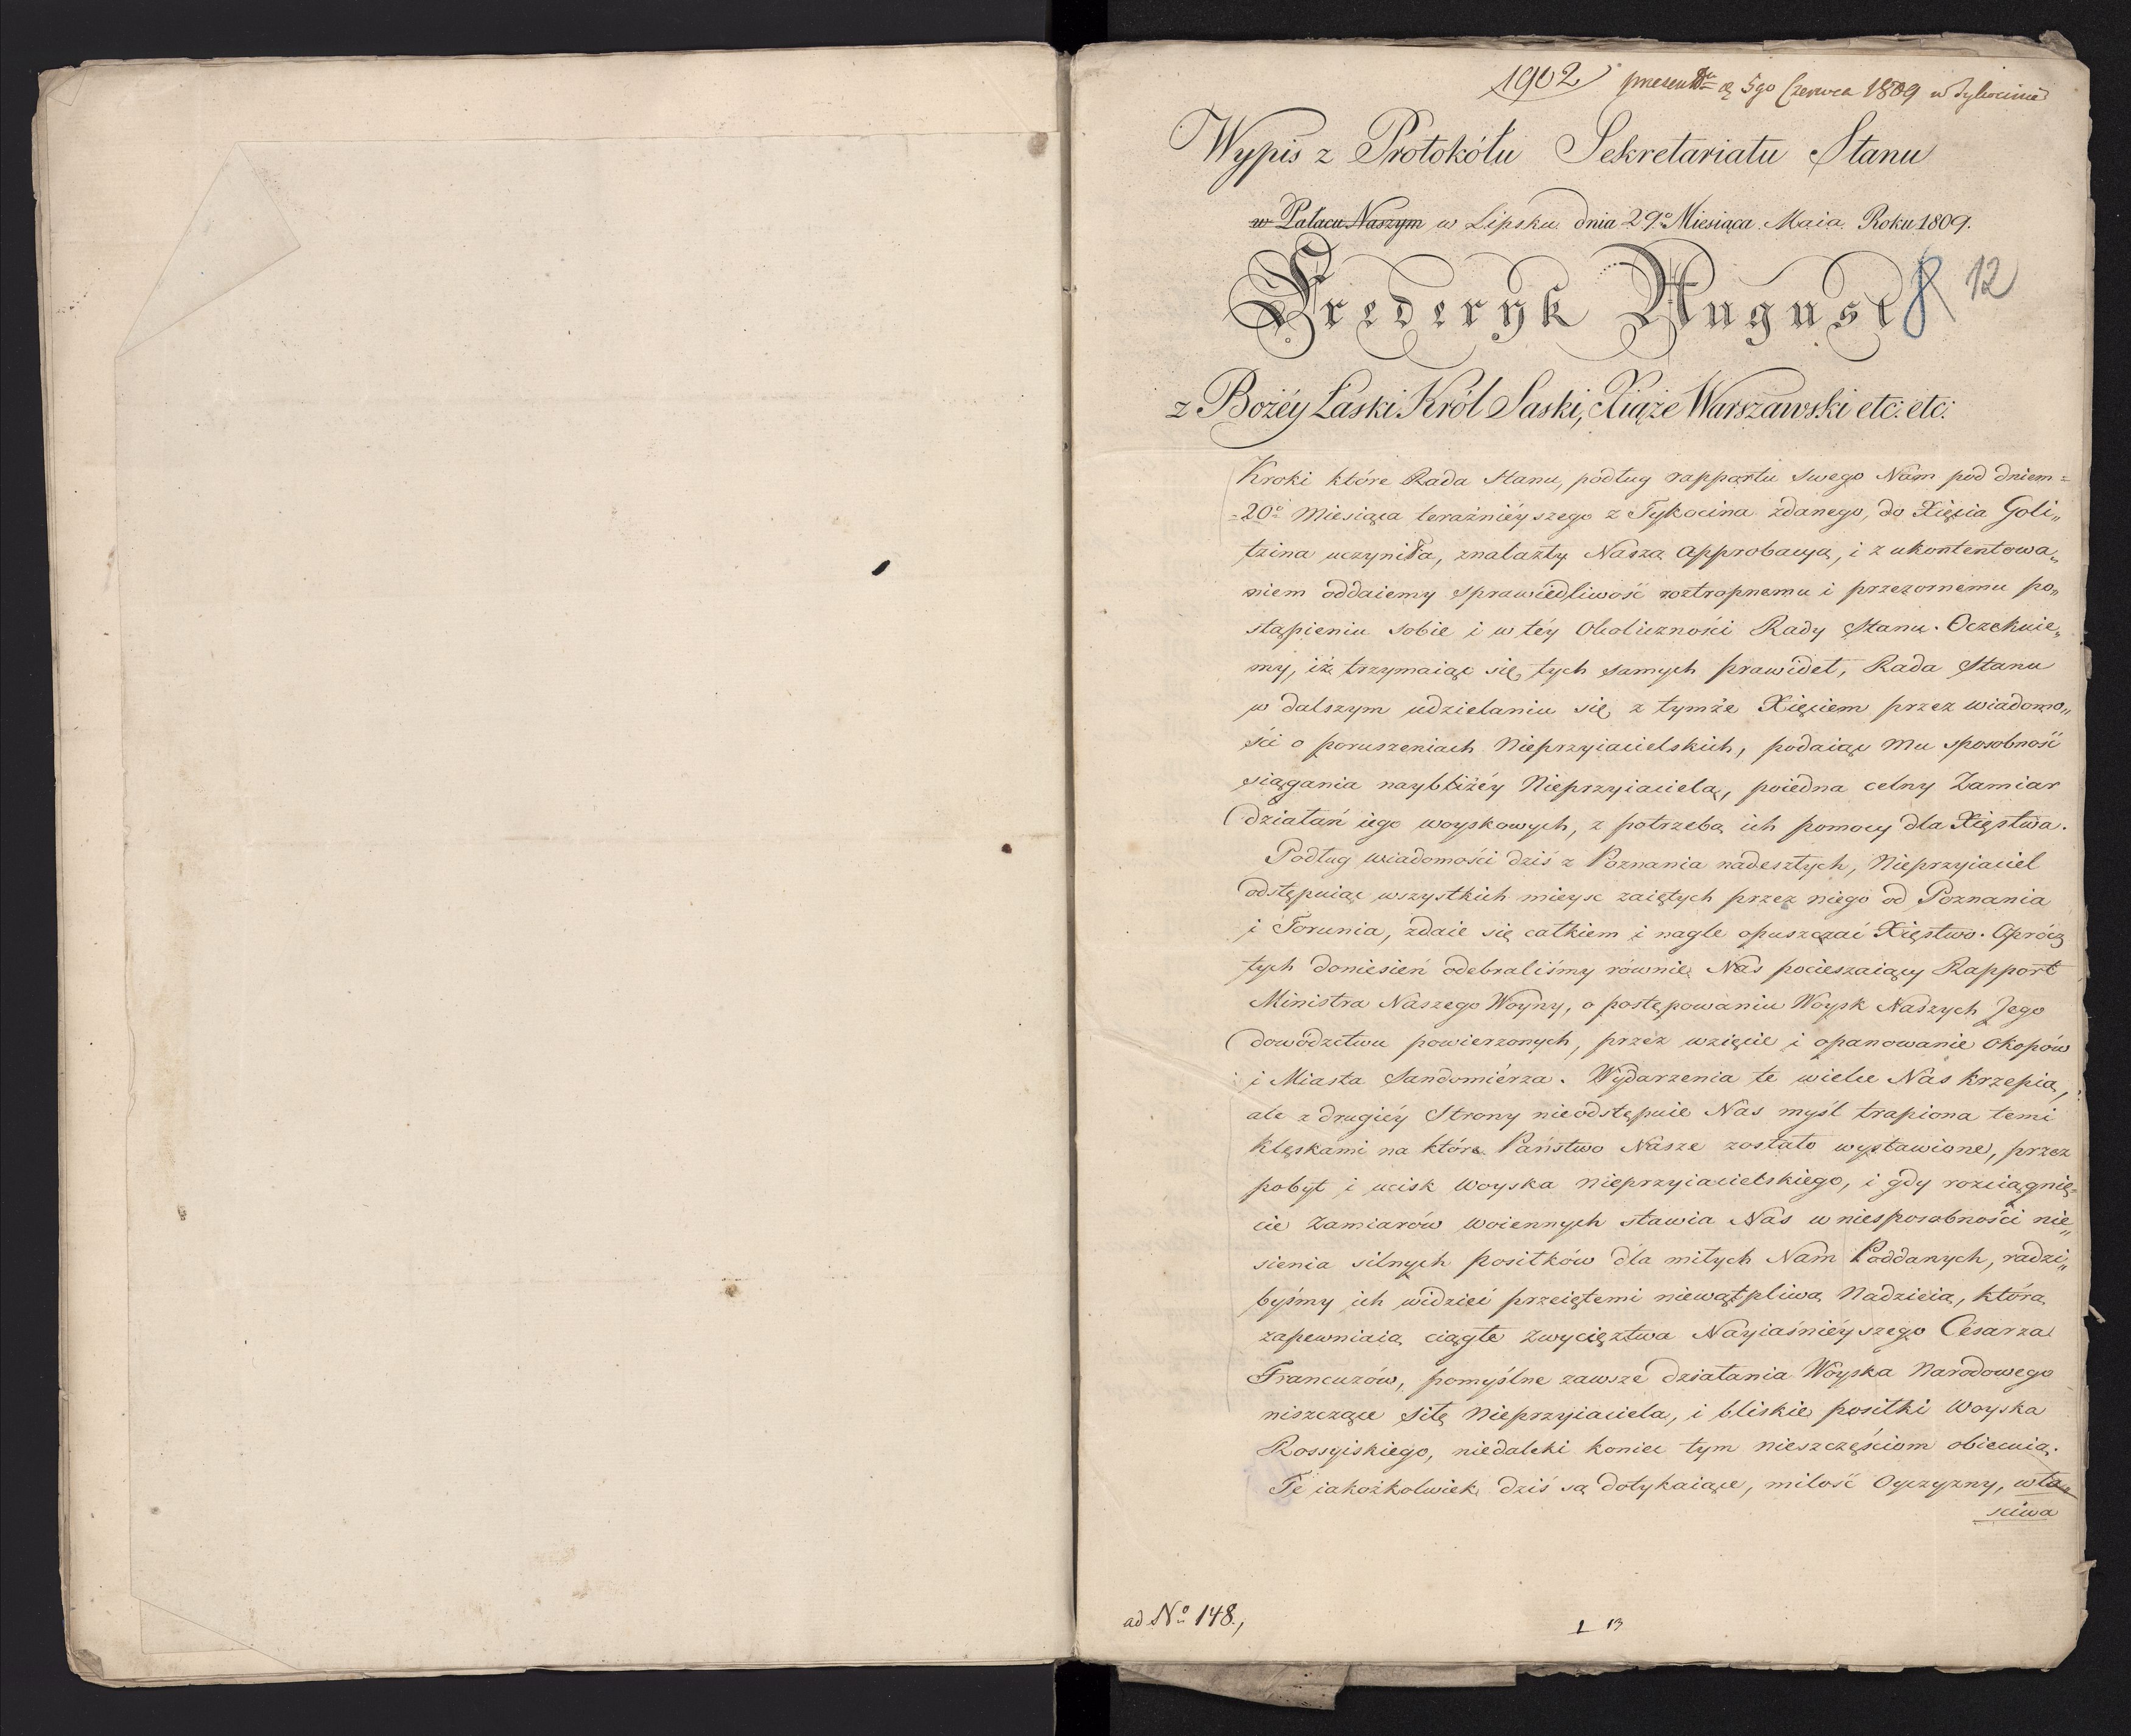 1902 præsent: d. 5go Czerwca 1809 w Tykocinie
Wypis z Protokółu Sekretariatu Stanu
w Pałacu Naszym w Lipsku dnia 29o Miesiąca Maia Roku 1809.
Frederyk August
8 12
z Bożéy Łaski Król Saski, Xiąże Warszawski etc: etc:
Kroki które Rada Stanu, podług rapportu swego Nam pod dniem=
=20o Miesiąca teraźnieyszego z Tykocina zdanego, do Xięcia Goli„
tzina uczyniła, znalazły Naszą Approbacyą, i z ukontentowa„
niem oddaiemy sprawiedliwość roztropnemu i przezornemu po„
stąpieniu sobie i w téy Okoliczności Rady Stanu. Oczekuie„
my, iż trzymaiąc się tych samych prawideł, Rada Stanu
w dalszym udzielaniu się z tymże Xięciem przez wiadomo„
ści o poruszeniach Nieprzyiacielskich, podaiąc Mu sposobność
siągania naybliżéy Nieprzyiaciela, poiedna celny Zamiar
działań iego woyskowych, z potrzebą ich pomocy dla Xięstwa.
Podług wiadomości dziś z Poznania nadeszłych, Nieprzyiaciel
odstępuiąc wszystkich mieysc zaiętych przez niego od Poznania
i Torunia, zdaie się całkiem i nagle opuszczać Xięstwo. Oprócz
tych doniesień odebraliśmy równie Nas pocieszaiący Rapport
Ministra Naszego Woyny, o postępowaniu Woysk Naszych Jego
dowództwu powierzonych, przez wzięcie i opanowanie Okopów
i Miasta Sandomiérza. Wydarzenia te wielce Nas krzepią,
ale z drugiéy Strony nieodstępuie Nas myśl trapiona temi
klęskami na które Państwo Nasze zostało wystawione, przez
pobyt i ucisk Woyska nieprzyiacielskiego, i gdy rozciągnię„
cie Zamiarów woiennych stawia Nas w niesposobności nie„
sienia silnych posiłków dla miłych Nam Poddanych, radzi„
byśmy ich widzieć przeiętemi niewątpliwą Nadzieią, którą
zapewniaią ciągłe zwycięztwa Nayiaśnieyszego Césarza
Francuzów, pomyślne zawsze działania Woyska Narodowego
niszczące siłę Nieprzyiaciela, i bliskie posiłki Woyska
Rossyiskiego, niedaleki koniec tym nieszczęściom obiecuią.
Te iakożkolwiek dziś są dotykaiące, miłość Oyczyzny, wła„
ściwa
ad No 148.,
1 13